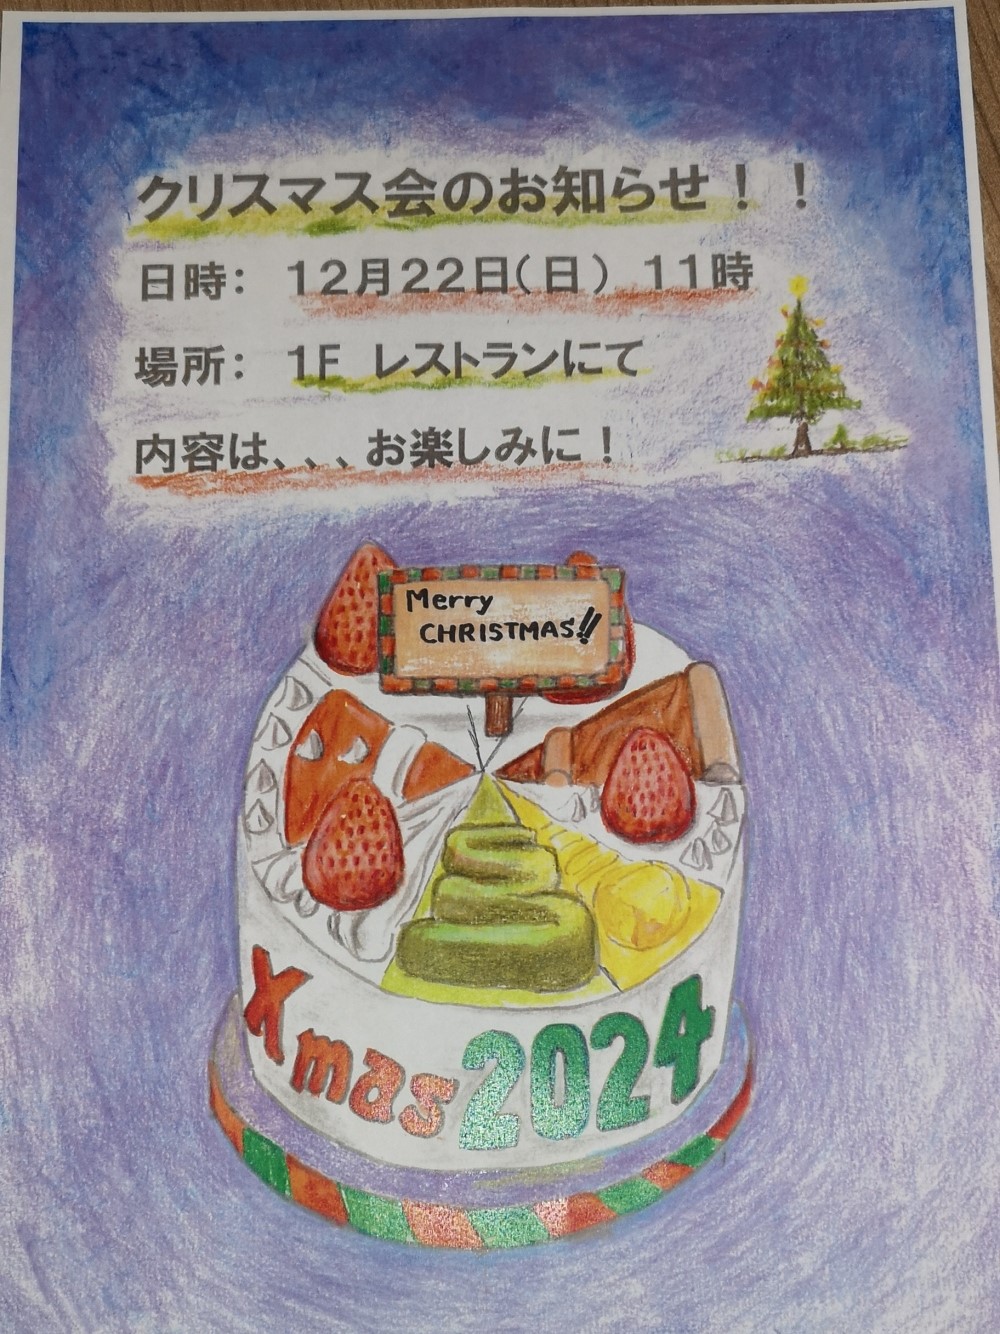 クリスマス会のお知らせ！！
日時： １２月２２日（日） １１時
場所： １F レストランにて
内容は、、、お楽しみに！
Merry
CHRISTMAS!!
Xmas 2024